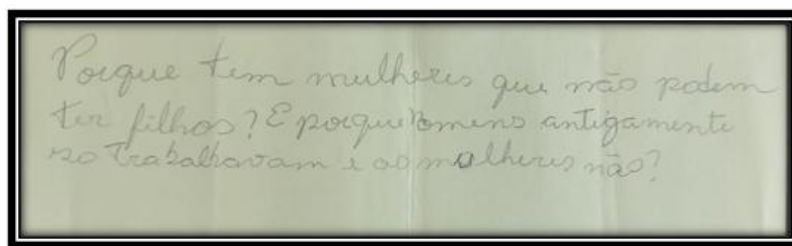 Porque tem mulheres que não podem
ter filhos? E porque omens antigamente
so trabalhavam e as mulheres não?